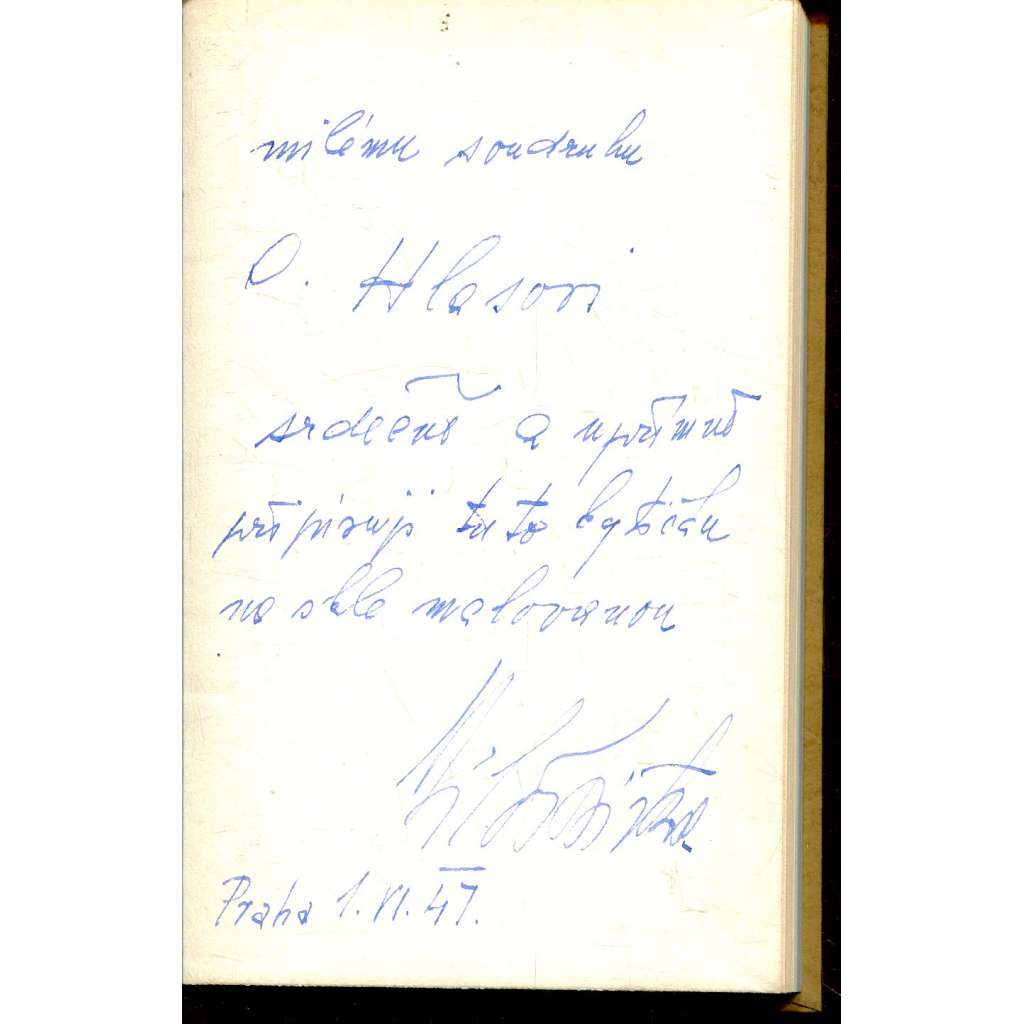 milému soudruhu
O. Hlasovi
srdečně a upřímně
připisuji tuto kytičku
na skle malovanou
Praha 1. VI. 47.